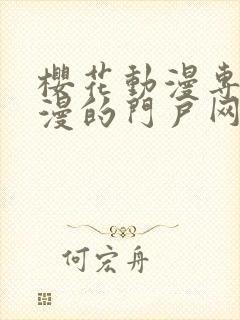 櫻花動漫專
漫的門戶网
何宏舟